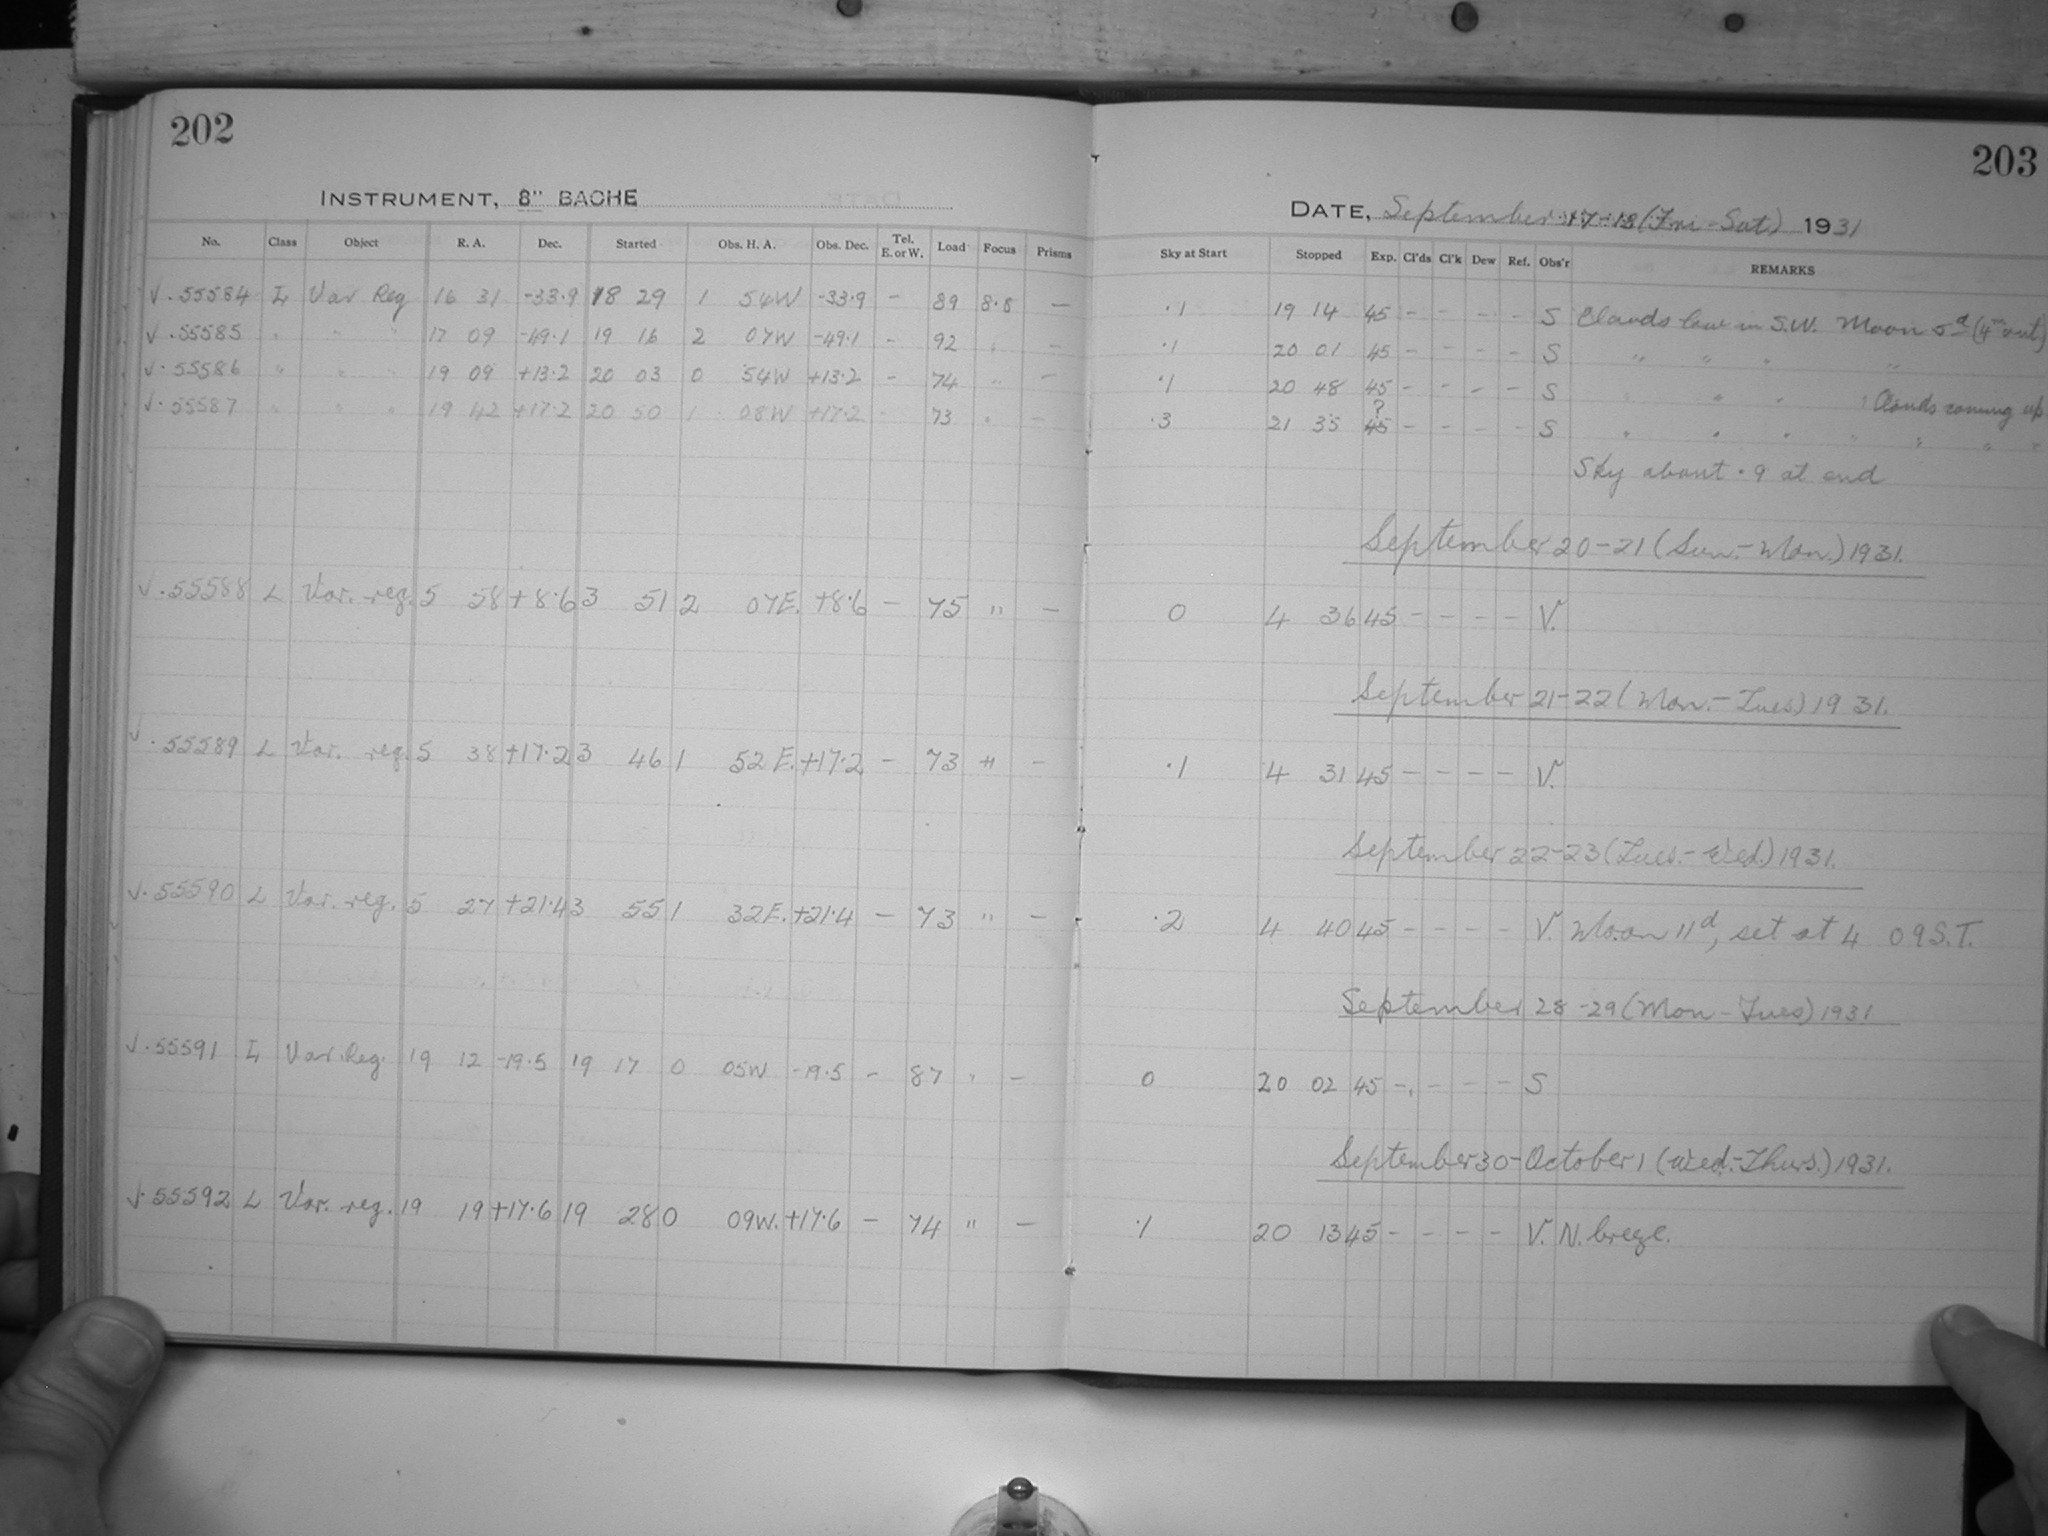 202
INSTRUMENT, 8" BACHE
No. Class Object R. A. Dec. Started Obs. H. A. Obs. Dec. Tel. E. or W. Load Focus Prisms
√ . 55584 L Var Reg 16 31 -33.9 18 29 1 54W -33.9 - 89 8.8 —
√ . 55585 " " " 17 09 -49.1 19 16 2 07W -49.1 - 92 " —
√ . 55586 " " " 19 09 +13.2 20 03 0 54W +13.2 - 74 " —
√ . 55587 " " " 19 42 +17.2 20 50 1 08W +17.2 73 " —
√ . 55588 L Var. reg. 5 58 +8.6 3 51 2 07E. +8.6 — 75 " —
√ . 55589 L Var. reg. 5 38 +17.2 3 46 1 52E. +17.2 — 73 " —
√ . 55590 L Var. reg. 5 27 +21.4 3 55 1 32E. +21.4 — 73 " —
√ . 55591 L Var. Reg. 19 12 -19.5 19 17 0 05W -19.5 - 87 " —
√ . 55592 L Var. reg. 19 19 +17.6 19 28 0 09W. +17.6 — 74 " —
203
DATE, September (Fri-Sat) 1931
Sky at Start Stopped Exp. Cl'ds Cl'k Dew Ref. Obs'r REMARKS
.1 19 14 45 - - - - S Clouds low in S.W. Moon 5d
.1 20 01 45 - - - - S " " " "
.1 20 48 45 - - - - S " " " " Clouds coming up
?
.3 21 35 45 - - - - S " " " " " " "
Sky about .9 at end
September 20-21 (Sun.-Mon.) 1931.
0 4 36 45 - - - - V.
September 21-22 (Mon.-Tues) 1931.
.1 4 31 45 - - - - V.
September 22-23 (Tues.-Wed.) 1931.
.2 4 40 45 - - - - V. Moon 11d, set at 4 09 S.T.
September 28-29 (Mon-Tues) 1931
0 20 02 45 - - - - S
September 30-October 1 (Wed.-Thurs.) 1931.
.1 20 13 45 - - - - V. N. breze.